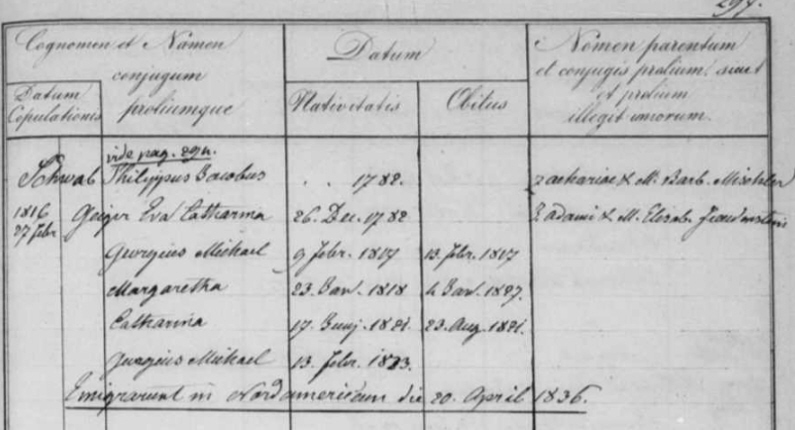 297.
Cognomen et Nomen
conjugum
proliumque
Datum
Copulationis
Datum
Nativitatis
Obitus
Nomen parentum
et conjugis prolium, sicut
et prolium
illegitimorum.
vide pag. 291.
Schwab Philippus Jacobus . . 1782. Zachariae & M. Barb. Mischler
1816 Geiger Eva Catharina 26. Dec. 1782 Adami & M. Elisab.
27 febr
Georgius Michael 9 febr. 1817 13. febr. 1817
Margaretha 23. Jan. 1818 4 Jan. 1827.
Catharina 17. Junj. 1821. 23. Aug. 1821.
Georgius Michael 13. febr. 1823.
Emigrarunt in Nordamericam die 20. April 1836.